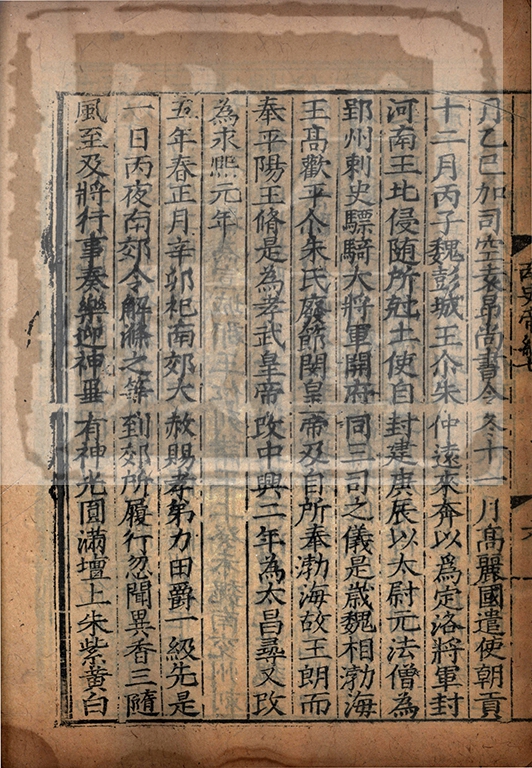 月乙巳加司空袁昻尚書令冬十一月高麗國遣使朝貢
十二月丙子魏彭城王尒朱仲遠來奔以爲定洛將軍封
河南王北侵随所尅土使自封建庚辰以太尉元法僧爲
郢州剌史驃騎大將軍開府同三司之儀是歳魏相勃海
王髙歡平尒朱氏廢節閔皇帝及自所奉勃海故王朗而
奉平陽王脩是為孝武皇帝改中興二年為太昌尋又改
為永熙元年
五年春正月辛卯祀南郊大赦賜孝弟力田爵一級先是
一日丙夜南郊令解滌之等到郊所履行忽聞異香三隨
風至及將行事奏樂迎神畢有神光圓滿壇上朱紫黄白